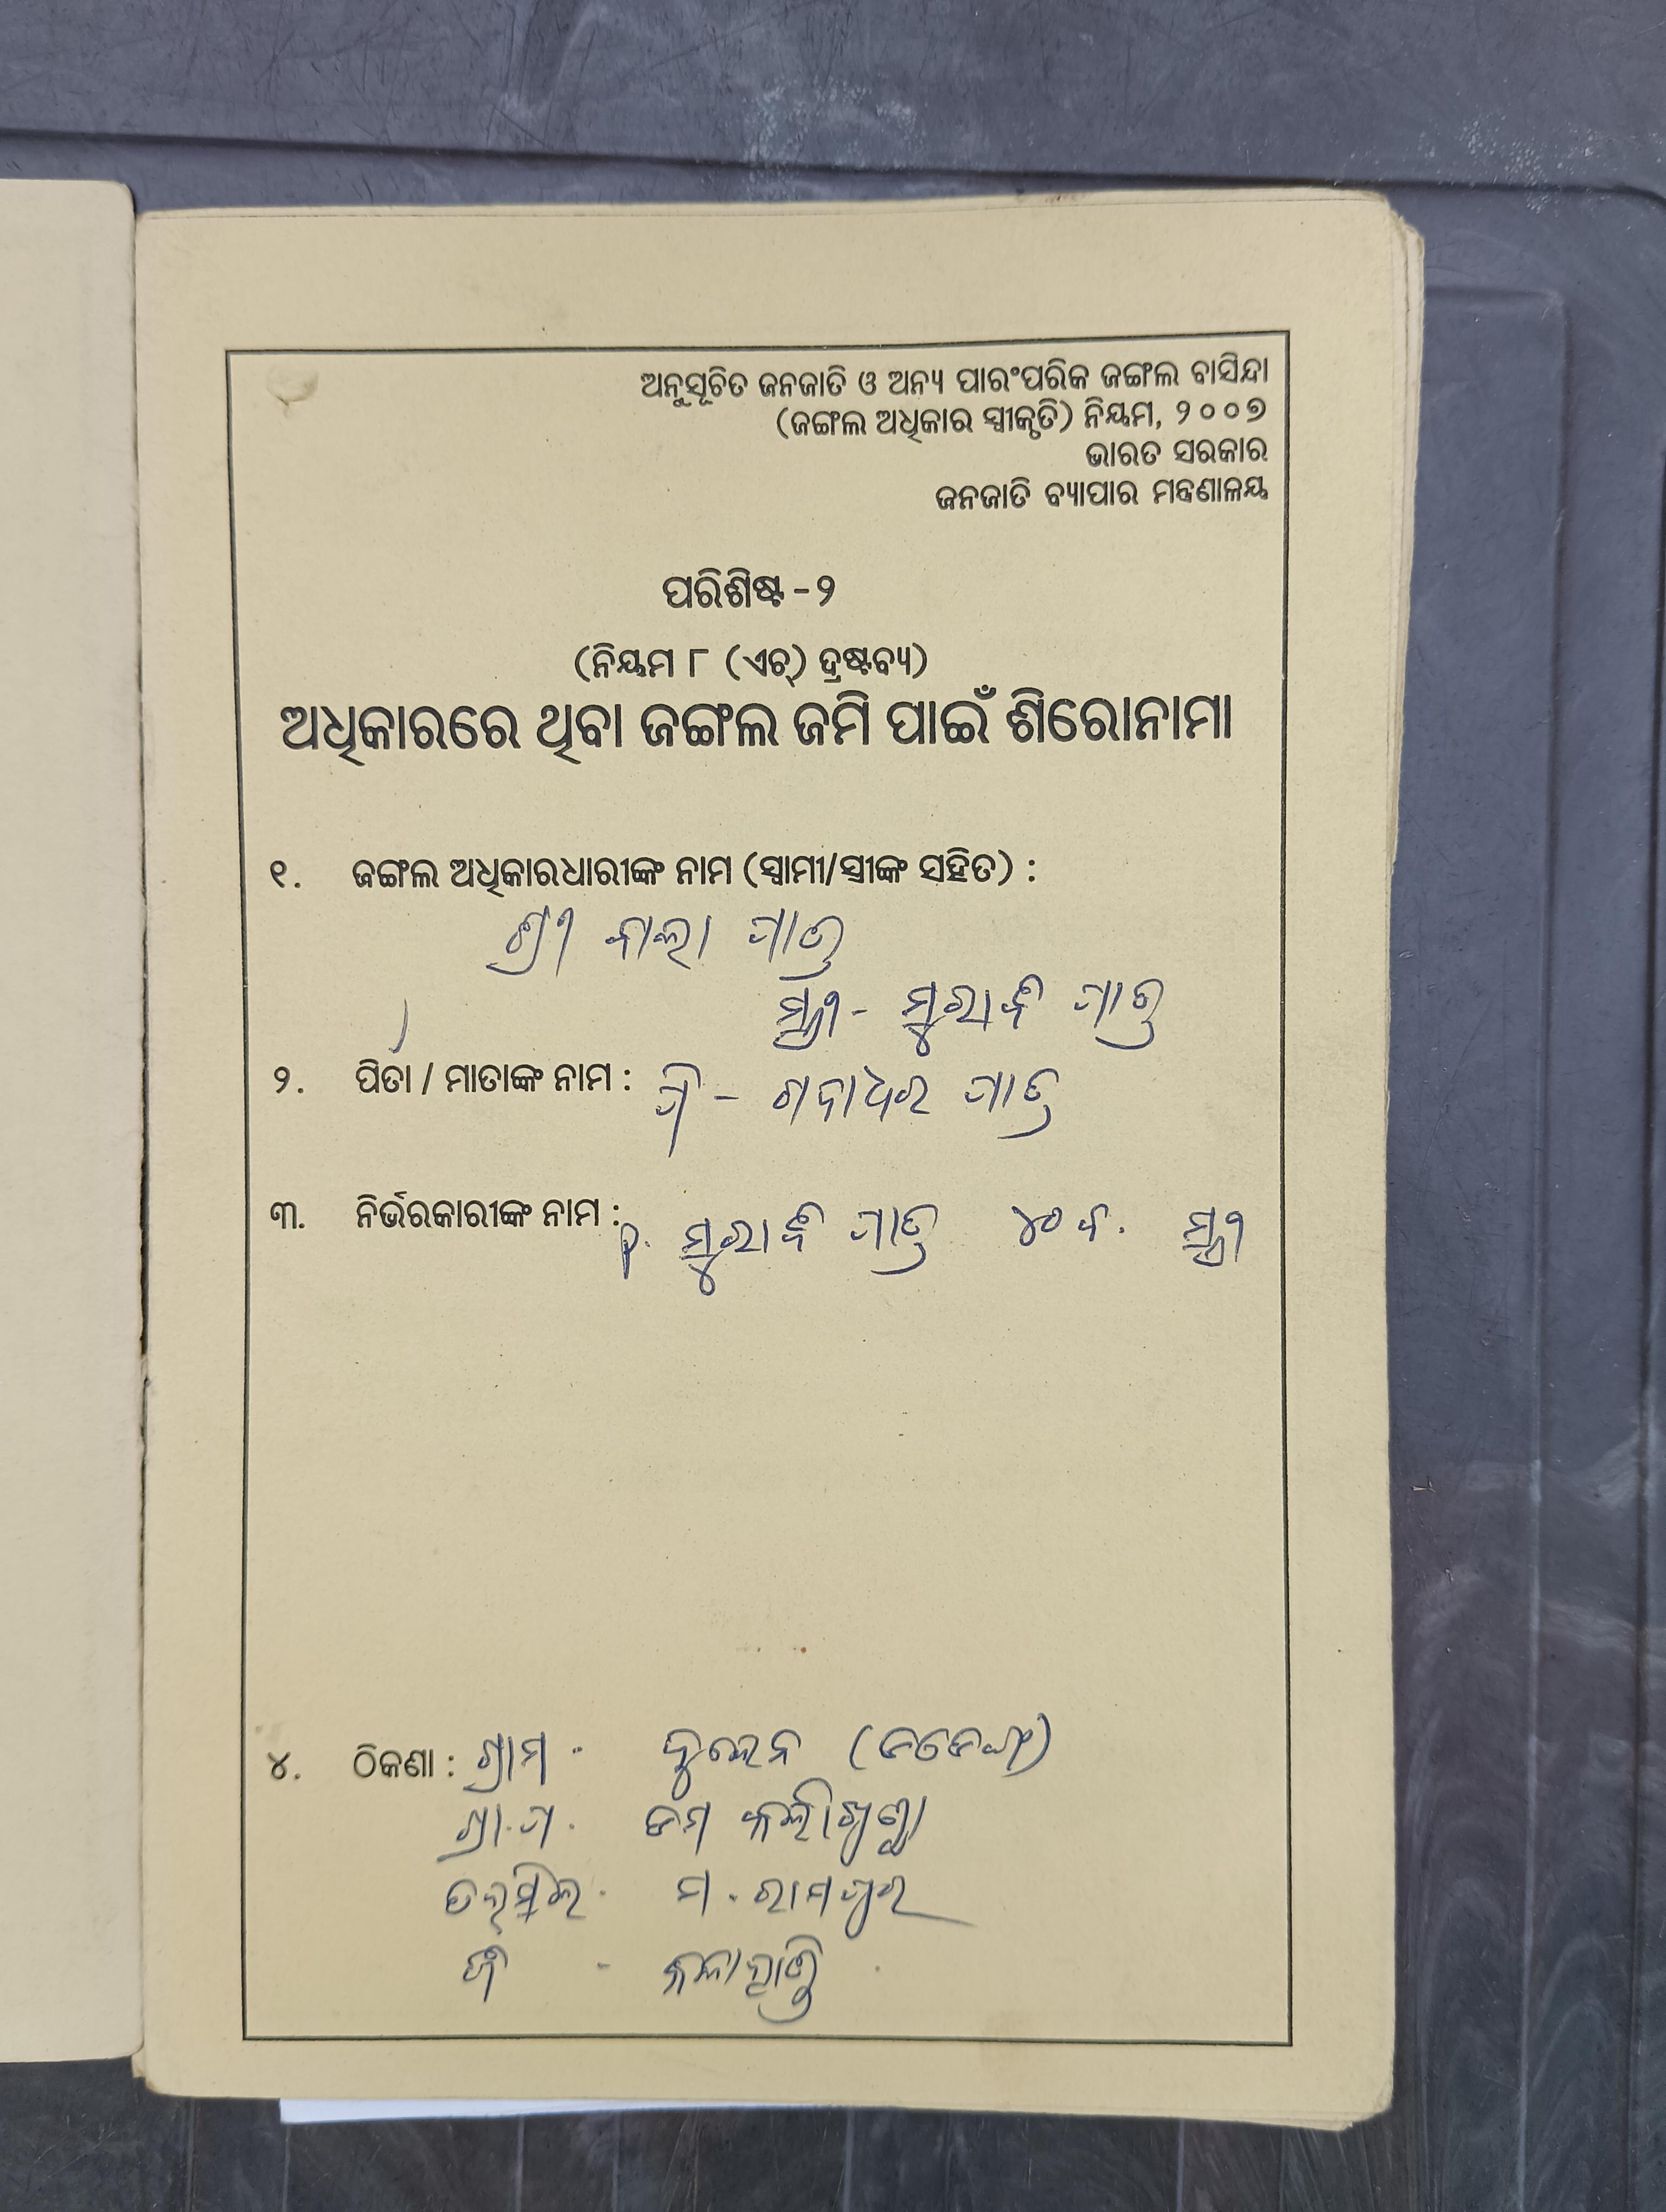 ଅନୁସୂଚିତ ଜନଜାତି ଓ ଅନ୍ୟ ପାରଂପରିକ ଜଙ୍ଗଲ ବାସିନ୍ଦା
(ଜଙ୍ଗଲ ଅଧିକାର ସ୍ୱୀକୃତି) ନିୟମ, ୨୦୦୭
ଭାରତ ସରକାର
ଜନଜାତି ବ୍ୟାପାର ମନ୍ତ୍ରଣାଳୟ
ପରିଶିଷ୍ଟ - ୨
(ନିୟମ ୮ (ଏଚ୍) ଦ୍ରଷ୍ଟବ୍ୟ)
ଅଧିକାରରେ ଥିବା ଜଙ୍ଗଲ ଜମି ପାଇଁ ଶିରୋନାମା
୧. ଜଙ୍ଗଲ ଅଧିକାରଧାରୀଙ୍କ ନାମ (ସ୍ୱାମୀ/ସ୍ତ୍ରୀଙ୍କ ସହିତ) :
ଶ୍ରୀ ମାଝୀ
ସ୍ତ୍ରୀ -
୨. ପିତା / ମାତାଙ୍କ ନାମ : ପି - ଗଦାଧର
୩. ନିର୍ଭରକାରୀଙ୍କ ନାମ : ୪୦ ବ. ସ୍ତ୍ରୀ
୪. ଠିକଣା : ଗ୍ରାମ -
ଗ୍ରା.ପ.
ତହସିଲ - ମ. ରାମପୁର
ଜି - କଳାହାଣ୍ଡି